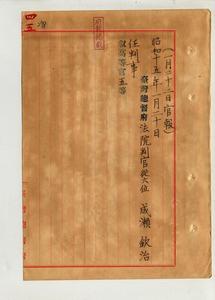 （一月二十二日官報）
昭和十五年一月二十日
臺灣總督府法院判官從六位 成瀬欽治
任判事
叙高等官五等